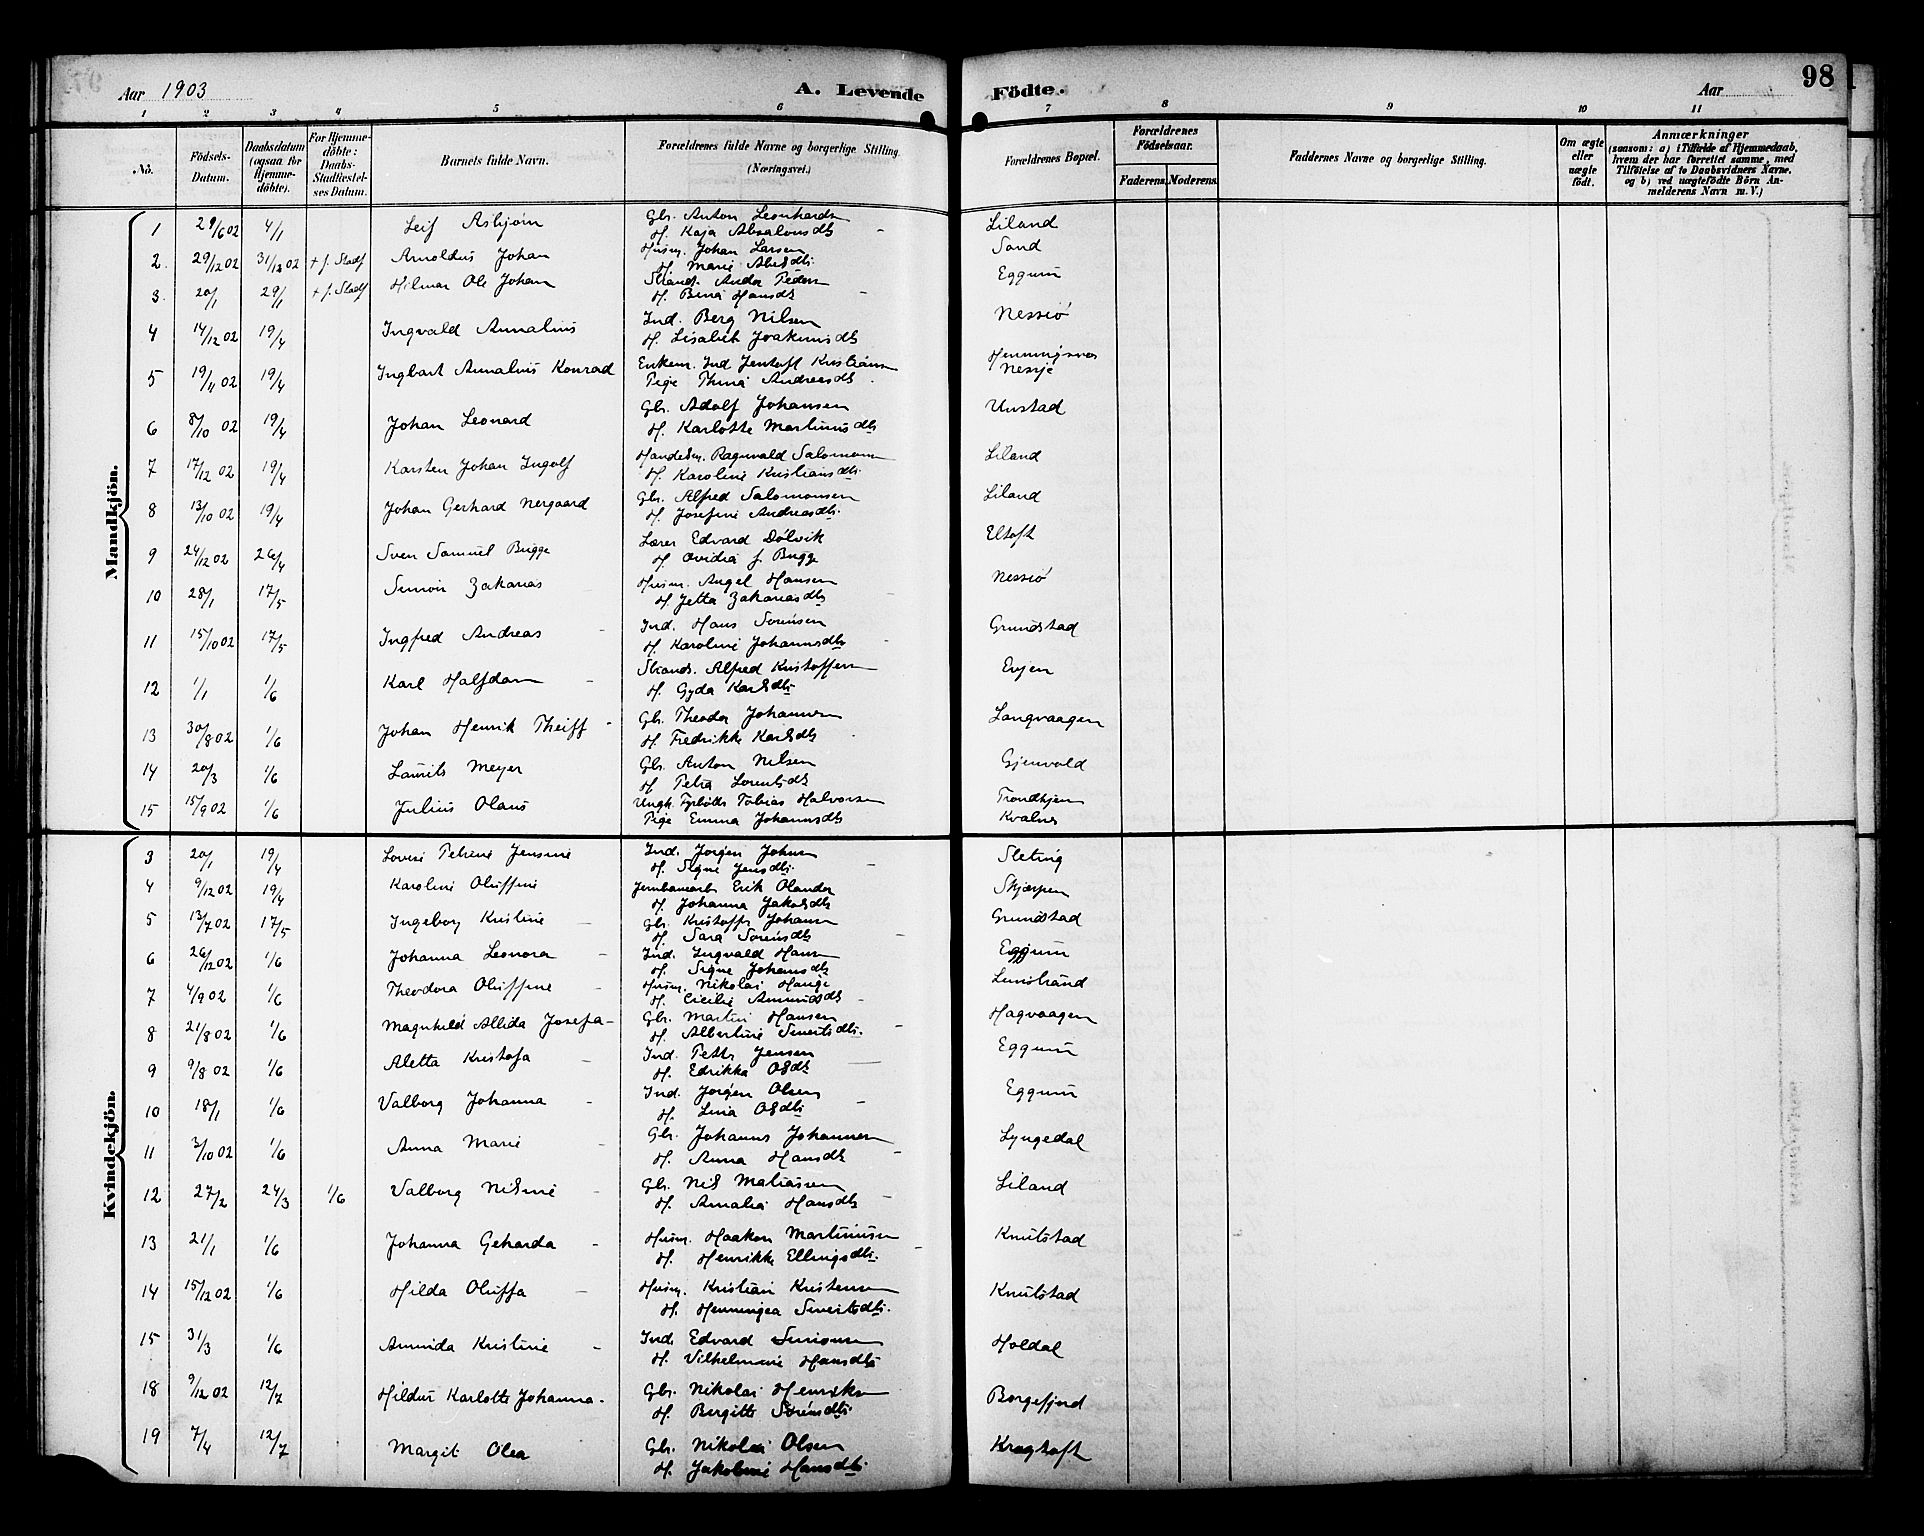 Aar 1903 A. Levende Födte. Aar 98
1 2 3 4 5 6 7 8 9 10 11
No. Födsels-Datum. Daabsdatum (ogsaa for Hjemme-döbte). For Hjemme-döbte: Daabs-Stadfæstel-ses Datum. Barnets fulde Navn. Forældrenes fulde Navne og borgerlige Stilling. (Næringsvei.) Forældrenes Bopæl. Forældrenes Födselsaar. Faderens. Moderens. Faddernes Navne og borgerlige Stilling. Om ægte eller uægte födt. Anmærkninger (saasom: a) i Tilfælde af Hjemmedaab, hvem der har forrettet samme, med Tilföielse af to Daabsvidners Navne, og b) ved uægtefödte Börn An-melderens Navn m. V.)
Mandkjön.
1 29/6 02 4/1 Leif Asbjörn Gbr. Anton Leonhards Liland
H. Kaja Absalonsdtr
2 29/12 02 31/12 02 + f. Stadf Arnoldus Johan Husm. Johan Larsen Sand
H. Marie Abelsdtr.
3 20/1 29/1 + f. Stadf Hilmar Ole Johan Strands. Andor Peders Eggum
H. Bina Hansdtr
4 14/12 02 19/4 Ingvald Annalius Ind. Berg Nilsen Nessió
H. Lisabet Joakimsdtr
5 19/4 02 19/4 Ingbart Annalius Konrad Enkem. Ind Jentoft Kristians Henningsvær
Pige Thina Andreasdtr. Nessje
6 8/10 02 19/4 Johan Leonard Gbr. Adolf Johansen Unstad
H. Karlotte Martinusdtr
7 17/12 02 19/4 Karsten Johan Ingolf Handelsm. Ragnvald Salomons Liland
H. Karoline Kristiansdtr.
8 13/10 02 19/4 Johan Gerhard Nergaard Gbr. Alfred Salomonsen Liland
H. Josefine Andreasdtr.
9 24/12 02 26/4 Sven Samuel Bugge Lærer Edvard Dölvik Eltoft
H. Ovidia f Bugge
10 28/1 17/5 Simon Zakarias Husm. Angel Hansen Nessió
H. Jetta Zakariasdtr
11 15/10 02 17/5 Ingfred Andreas Ind. Hans Sörensen Grundstad
H. Karoline Johannsdtr
12 1/1 1/6 Karl Halfdan Strands. Alfred Kristoffersen Evjen
H. Gyda Karlsdtr
13 30/8 02 1/6 Johan Henrik Theiff Gbr. Theodor Johannsen Langvaagen
H. Fredrikke Karlsdtr
14 20/3 1/6 Laurits Meyer Gbr. Anton Nilsen Gjenvold
H Petra Lorentsdtr
15 15/9 02 1/6 Julius Olaus Ungk. Tobias Halvorsen Trondhjem
Pige Emma Johannsdtr Kvalnes
Kvindekjön.
3 20/1 19/4 Lovise Petrine Jensine Ind. Jorgen Johns Sleting
H. Signe Jensdtr.
4 9/12 02 19/4 Karoline Oluffine Jernbanearb Erik Olander Skjærpen
H. Johanna Jakobsdtr
5 13/7 02 17/5 Ingeborg Kristine Gbr. Kristoffr Johans Grundstad
H. Sara Sörensdtr
6 26/12 02 1/6 Johanna Leonora Ind. Ingvald Hans Eggum
H. Signe Johansdtr
7 4/9 02 1/6 Theodora Oluffine Husm. Nikolai Hauge Limstrand
H. Cicilie Amundsdtr
8 21/8 02 1/6 Magnhild Allida Josefa Gbr. Martin Hansen Hagvaagen
H. Albertine Sivertsdtr.
9 9/8 02 1/6 Aletta Kristofa Ind. Petter Jensen Eggum
H. Edrikka Olsdtr
10 18/1 1/6 Valborg Johanna Ind. Jorgen Olsen Eggum
H. Lina Olsdtr
11 3/10 02 1/6 Anna Marie Gbr. Johanns Johannsen Lyngedal
H. Anna Hansdtr
12 27/2 24/3 1/6 Valborg Nilsine Gbr. Nils Matiassen Liland
H. Amalia Hansdtr
13 21/1 1/6 Johanna Geharda Husm. Haakon Martinius Knutstad
H. Henrikke Ellingsdtr.
14 15/12 02 1/6 Hilda Oluffa Husm. Kristian Kristensen Knutstad
H. Henningea Sivertsdtr.
15 31/3 1/6 Aminda Kristine Ind. Edvard Simonsen Holdal
H. Vilhelmine Hansdtr
18 9/12 02 12/7 Hildur Karlotte Johanna Gbr. Nikolai Henriks Borgefjord
H. Bergitte Sörensdtr.
19 7/4 12/7 Margit Olea Gbr. Nikolai Olsen Kragtoft
H. Jakobine Hansdtr.